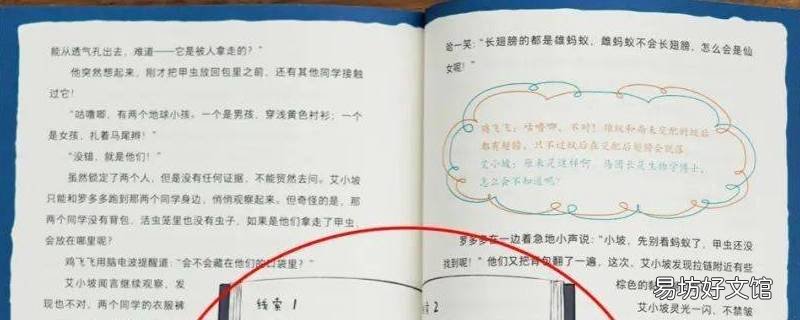 能从透气孔出去，难道——它是被人拿走的？”
他突然想起来，刚才把甲虫放回包里之前，还有其他同学接触
过它！
“咕噜唧，有两个地球小孩。一个是男孩，穿浅黄色衬衫；一个
是女孩，扎着马尾辫！”
“没错，就是他们！”
虽然锁定了两个人，但是没有任何证据，不能贸然去问。艾小坡
只能和罗多多跑到那两个同学身边，悄悄观察起来。但奇怪的是，那
两个同学没有背包，活虫笼里也没有虫子，如果是他们拿走了甲虫，
会放在哪里呢？
鸡飞飞用脑电波提醒道：“会不会藏在他们的口袋里？”
艾小坡闻言继续观察，发
现也不对，两个同学的衣服裤
线索 1
哈一笑：“长翅膀的都是雄蚂蚁，雌蚂蚁不会长翅膀，怎么会是仙
女呢！”
鸡飞飞：咕噜唧，不对！雄蚁和尚未交配的蚁后
都有翅膀，只不过蚁后在交配后翅膀会脱落。
艾小坡：原来是这样啊，马团长是生物学博士，
怎么会不知道呢？
罗多多在一边着急地小声说：“小坡，先别看蚂蚁了，甲虫还没
找到呢！”他们又把背包翻了一遍，这次，艾小坡发现拉链附近有些
棕色的
艾小坡灵光一闪，不禁皱
2
易坊好文馆